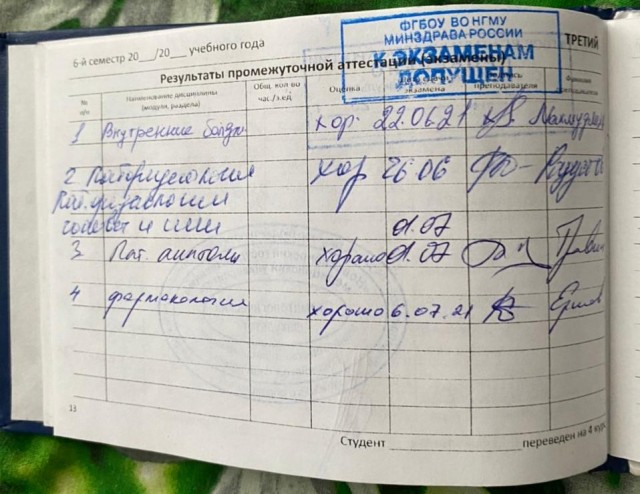 ФГБОУ ВО НГМУ
МИНЗДРАВА РОССИИ
К ЭКЗАМЕНАМ
ДОПУЩЕН
6-й семестр 20___/20___ учебного года
ТРЕТИЙ
Результаты промежуточной аттестации (экзамены)
№ п/п
Наименование дисциплины (модуля, раздела)
Общ. кол-во час./з.ед.
Оценка
экзамена
преподавателя
Фамилия преподавателя
1 Внутренние болезни хор. 22.06.21
2 Патфизиология хор 26.06
Пат. физиология
головы и шеи 01.07
3 Пат. анатомия хорошо 01.07
4 фармакология хорошо 6.07.21
13
Студент ____________________ переведен на 4 курс